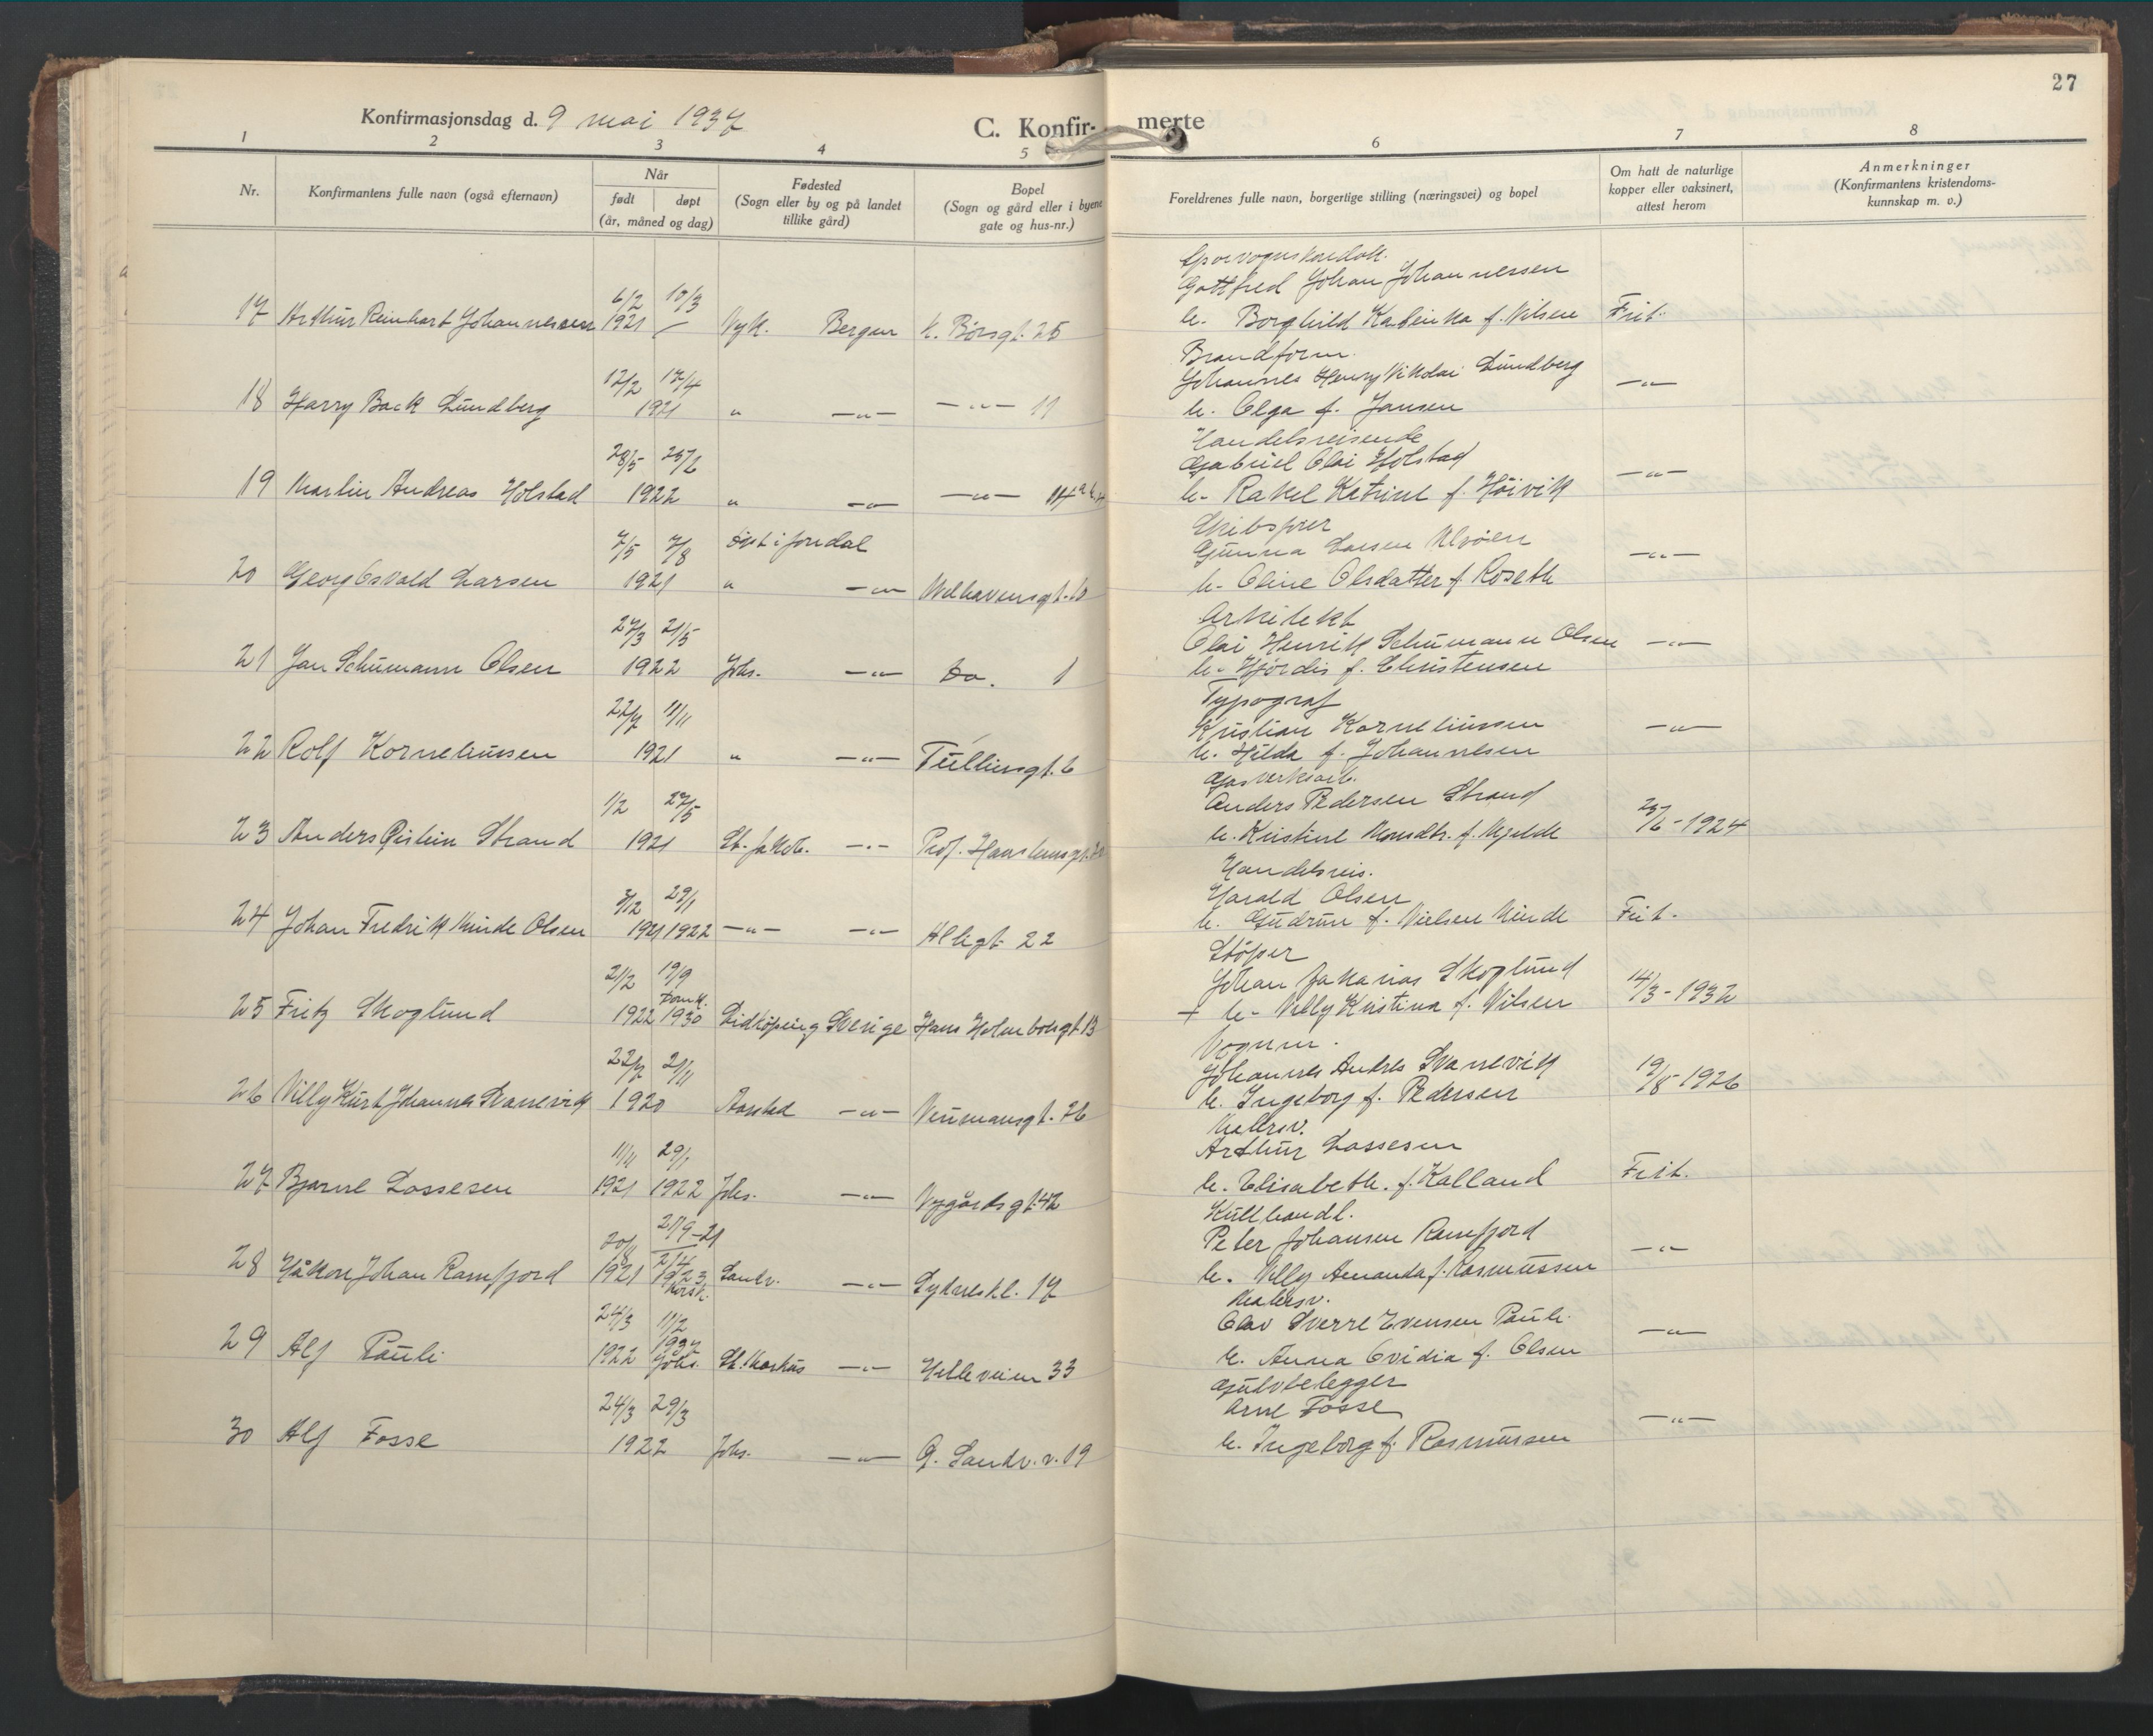 27
Konfirmasjonsdag d. 9 mai 1937
C. Konfir- merte
1 2 3 4 5 6 7 8
Nr.
Konfirmantens fulle navn (også efternavn)
Når
født døpt
(år, måned og dag)
Fødested
(Sogn eller by og på landet
tillike gård)
Bopel
(Sogn og gård eller i byene
gate og hus-nr.)
Foreldrenes fulle navn, borgerlige stilling (næringsvei) og bopel
Om hatt de naturlige
kopper eller vaksinert,
attest herom
Anmerkninger
(Konfirmantens kristendoms-
kunnskap m. v.)
Gottfred Johan Johannessen
6/2 10/3
17 Arthur Reinhart Johannessen 1921 — Nyk. Bergen K. Børsgt. 25 h. Borghild f. Nilsen Frit.
Brandform.
12/2 17/4 Johannes Henry Nikolai Lundberg —"—
18 Harry Back Lundberg 1921 " —"— —"— 11 h. Olga f. Jansen
Handelsreisende
28/5 25/6 Gabriel Olai Holstad —"—
19 Martin Andreas Holstad 1922 " —"— —"— h. Rakel Katrine f. Høivik
7/5 7/8 døpt i Jondal Skibsfører
Gunna Larsen Alvøen —"—
20 Georg Osvald Larsen 1921 " —"— Welhavensgt. h. Oline Olsdatter f. Roseth
Arkitekt
27/3 21/5 Olai Henrik Schumann Olsen —"—
21 Jan Schumann Olsen 1922 Johs. —"— Do. 1 h. Hjørdis f. Christensen
Typograf
22/7 11/11 Kristian Korneliussen —"—
22 Rolf Korneliussen 1921 " —"— Tullinsgt. 6 h. Hilda f. Johannesen
Gasverksarb.
1/2 27/5 Anders Pedersen Strand
23 Anders Øistein Strand 1921 St. Jakob. —"— Prof. Hansteensgt. h. Kristine Monsdtr. f. Mjelde 23/6-1924
Handelsreis.
3/12 29/1 Harald Olsen
24 Johan Fredrik Minde Olsen 1921 1922 —"— —"— Allegt. 22 h. Gudrun f. Nielsen Minde Frit.
Støper
21/2 19/9 Johan Zakarias Skoglund
Domk.
25 Fritz Skoglund 1922 1930 Lidköping Sverige Hans Holmboesgt. 13 + h. Villy Kristina f. Nilsen 14/3-1932
Vognm.
22/7 21/11 Johannes Andres Svanevik
26 Villy Kurt Johannes Svanevik 1920 Aarstad —"— Neumansgt. 26 h. Ingeborg f. Pedersen 19/8-1926
Malersv.
11/11 29/1 Arthur Lassesen
27 Bjarne Lassesen 1921 1922 Johs. —"— Nygårdsgt. 42 h. Elisabeth f. Kalland Frit.
Kullhandl.
21/9-21 Peter Johansen Ramfjord
2/4
28 Håkon Johan Ramfjord 1921 1923 Sandv. —"— Sydneskl. 17 h. Villy Amanda f. Rasmussen —"—
Korsk.
Malersv.
24/3 11/2 Olav Sverre Evensen Pauli —"—
1937
29 Alf Pauli 1922 Johs. St. Markus —"— Helleveien 33 h. Anna Ovidia f. Olsen
Gulvbelegger
24/3 29/3 Arne Fosse —"—
30 Alf Fosse 1922 Johs. —"— G. Sandv. v. 19 h. Ingeborg f. Rasmussen